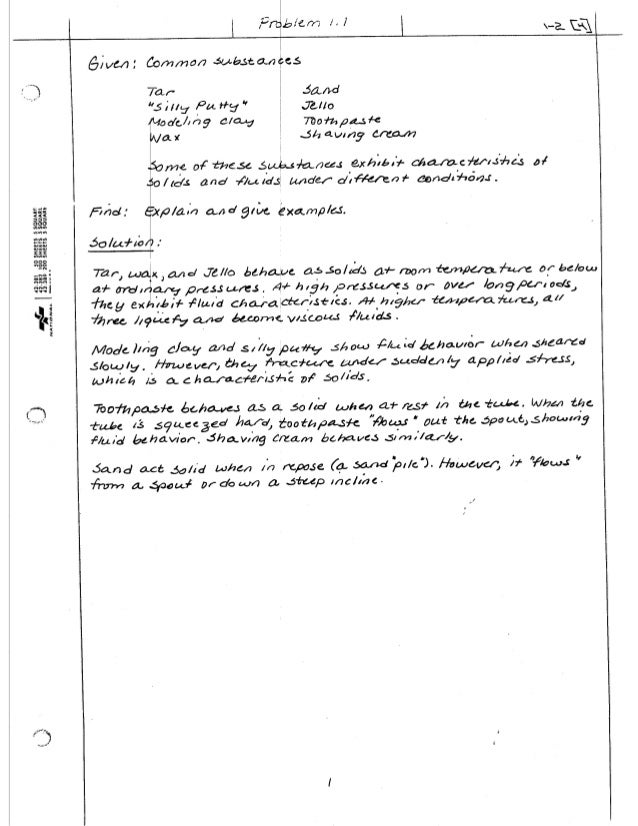 Problem 1.1
1-2 [4]
Given: Common substances
Tar Sand
"Silly Putty" Jello
Modeling clay Toothpaste
Wax Shaving cream
Some of these substances exhibit characteristics of
solids and fluids under different conditions.
Find: Explain and give examples.
Solution:
Tar, wax, and Jello behave as solids at room temperature or below
at ordinary pressures. At high pressures or over long periods,
they exhibit fluid characteristics. At higher temperatures, all
three liquefy and become viscous fluids.
Modeling clay and silly putty show fluid behavior when sheared
slowly. However, they fracture under suddenly applied stress,
which is a characteristic of solids.
Toothpaste behaves as a solid when at rest in the tube. When the
tube is squeezed hard, toothpaste "flows" out the spout, showing
fluid behavior. Shaving cream behaves similarly.
Sand act solid when in repose (a sand "pile"). However, it "flows"
from a spout or down a steep incline.
NATIONAL
1